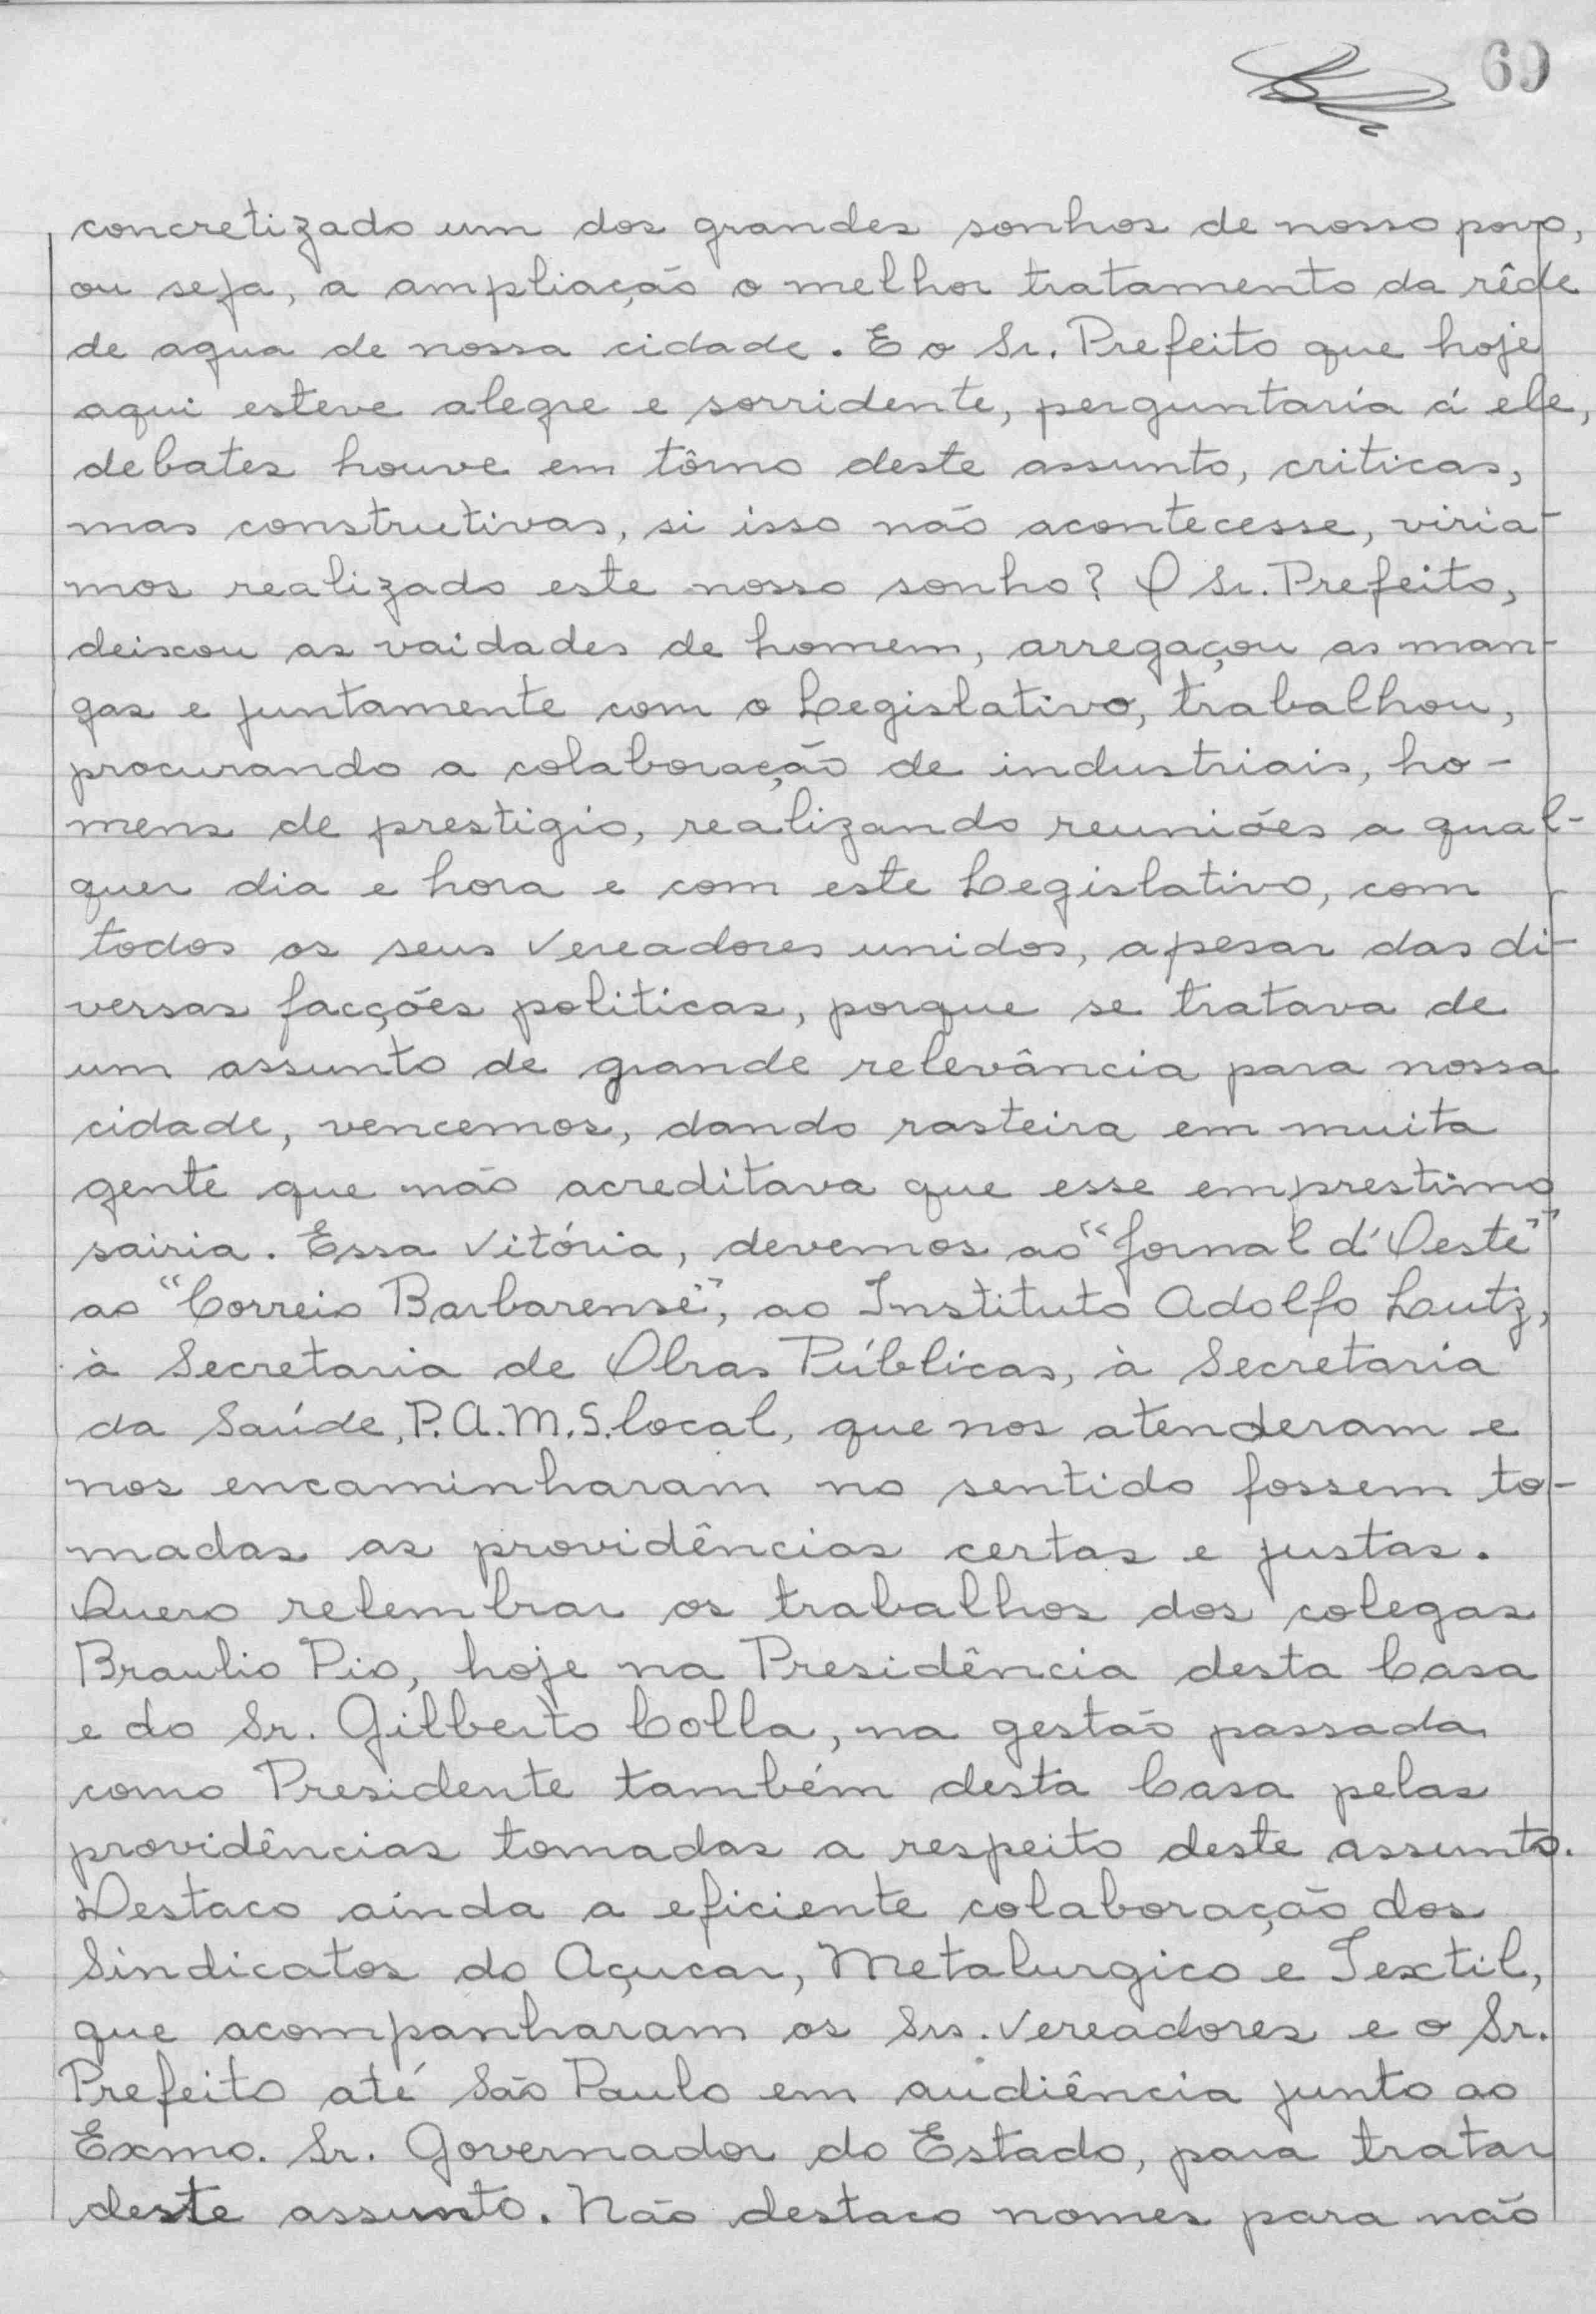 69
concretizado um dos grandes sonhos de nosso povo,
ou seja, a ampliação o melhor tratamento da rêde
de agua de nossa cidade. E o Sr. Prefeito que hoje
aqui esteve alegre e sorridente, perguntaria á ele,
debates houve em tôrno deste assunto, criticas,
mas construtivas, si isso não acontecesse, viria-
mos realizado este nosso sonho? O Sr. Prefeito,
deixou as vaidades de homem, arregaçou as man-
gas e juntamente com o Legislativo, trabalhou,
procurando a colaboração de industriais, ho-
mens de prestigio, realizando reuniões a qual-
quer dia e hora e com este Legislativo, com
todos os seus Vereadores unidos, apesar das di-
versas facções politicas, porque se tratava de
um assunto de grande relevância para nossa
cidade, vencemos, dando rasteira em muita
gente que não acreditava que esse emprestimo
sairia. Essa Vitória, devemos ao "Jornal d'Oeste"
ao "Correio Barbarense", ao Instituto Adolfo Lutz,
à Secretaria de Obras Públicas, à Secretaria
da Saúde, P.A.M.S. local, que nos atenderam e
nos encaminharam no sentido fossem to-
madas as providências certas e justas.
Quero relembrar os trabalhos dos colegas
Braulio Pio, hoje na Presidência desta Casa
e do Sr. Gilberto Colla, na gestão passada
como Presidente também desta Casa pelas
providências tomadas a respeito deste assunto.
Destaco ainda a eficiente colaboração dos
Sindicatos do Açucar, Metalurgico e Textil,
que acompanharam os Srs. Vereadores e o Sr.
Prefeito até São Paulo em audiência junto ao
Exmo. Sr. Governador do Estado, para tratar
deste assunto. Não destaco nomes para não